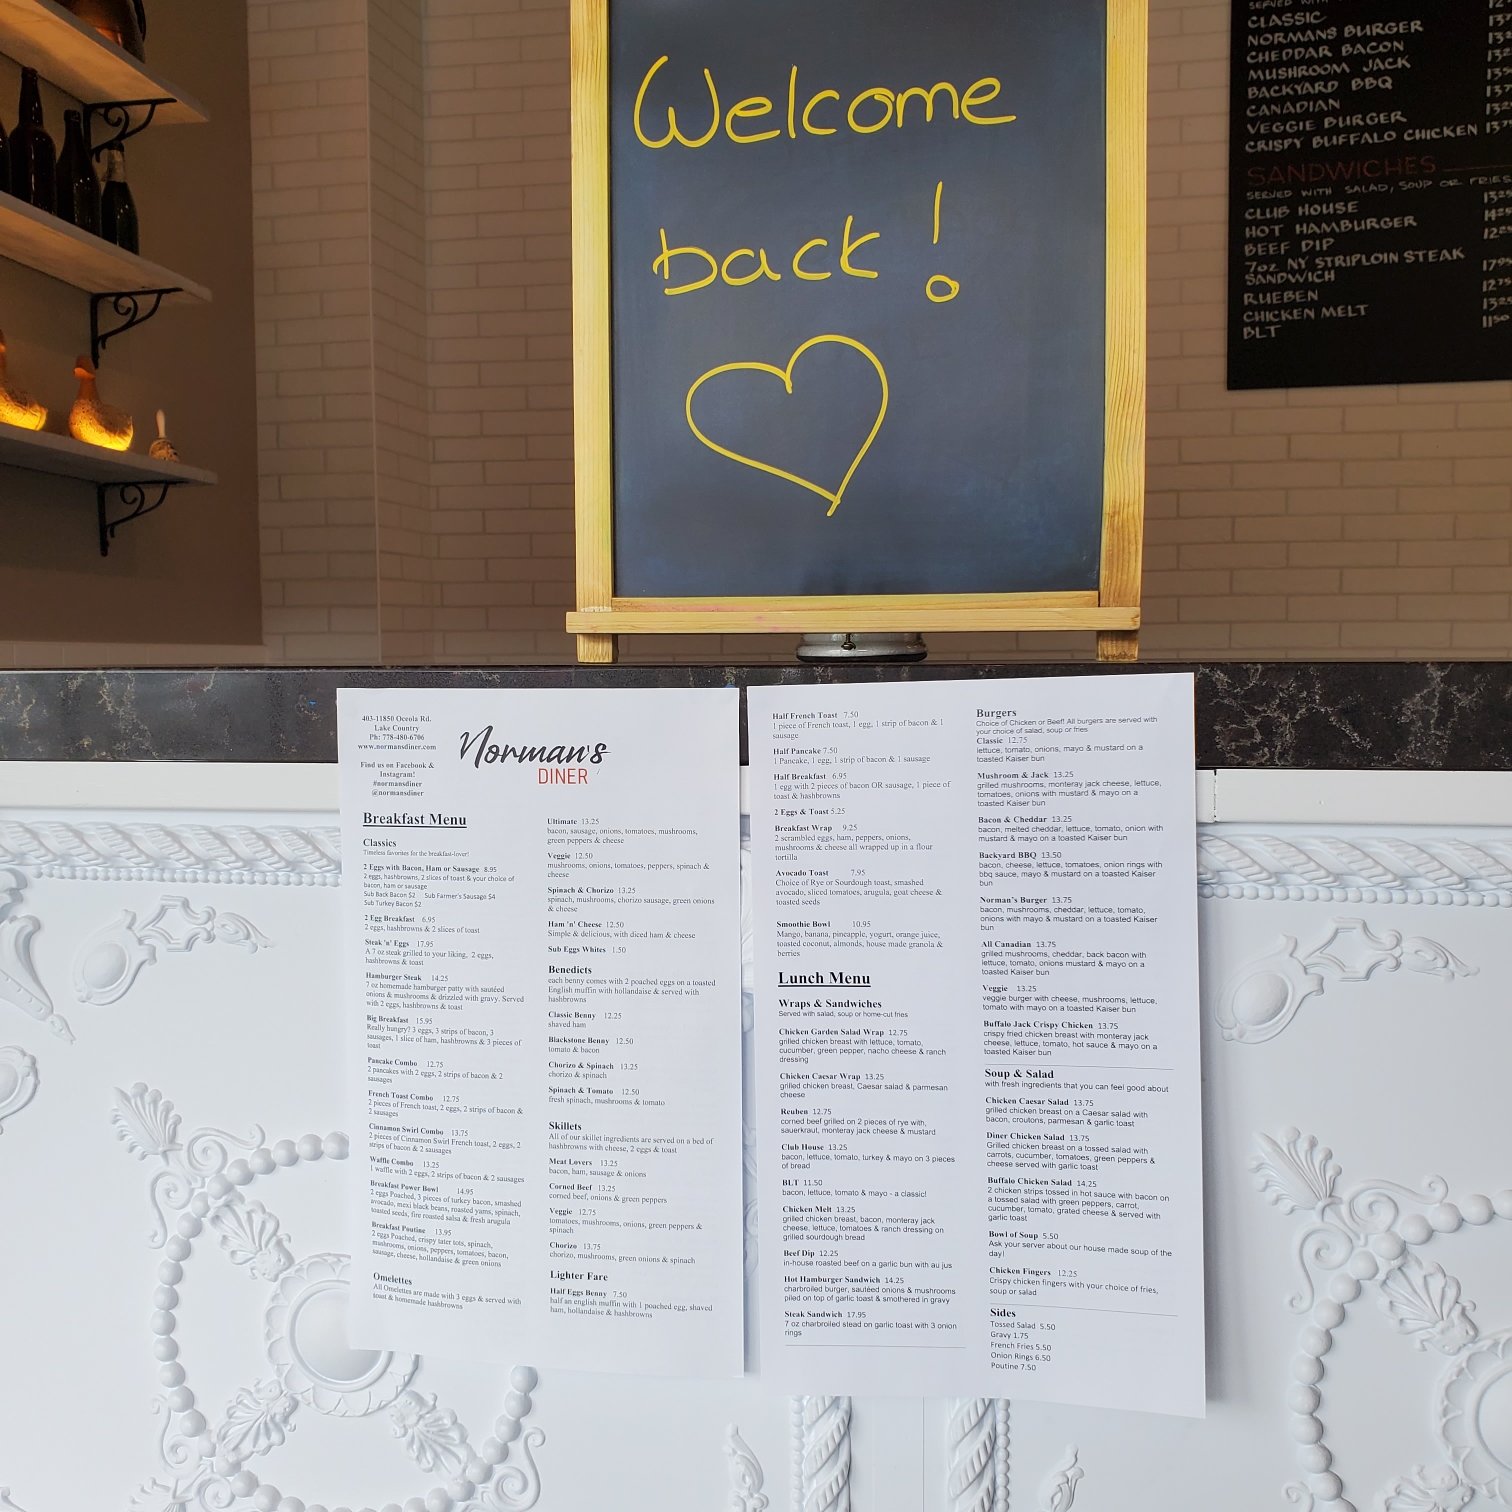 Welcome
back!
SERVED WITH
CLASSIC
NORMANS BURGER
CHEDDAR BACON
MUSHROOM JACK
BACKYARD BBQ
CANADIAN
VEGGIE BURGER
CRISPY BUFFALO CHICKEN
SANDWICHES
SERVED WITH SALAD, SOUP OR FRIES
CLUB HOUSE
HOT HAMBURGER
BEEF DIP
7oz NY STRIPLOIN STEAK
SANDWICH
RUEBEN
CHICKEN MELT
BLT
403-11850 Oceola Rd.
Lake Country
Ph: 778-480-6706
www.normansdiner.com
Find us on Facebook &
Instagram!
#normansdiner
@normansdiner
Norman's
DINER
Breakfast Menu
Classics
Timeless favorites for the breakfast-lover!
2 Eggs with Bacon, Ham or Sausage 8.95
2 eggs, hashbrowns, 2 slices of toast & your choice of
bacon, ham or sausage
Sub Back Bacon $2 Sub Farmer's Sausage $4
Sub Turkey Bacon $2
2 Egg Breakfast 6.95
2 eggs, hashbrowns & 2 slices of toast
Steak 'n' Eggs 17.95
A 7 oz steak grilled to your liking, 2 eggs,
hashbrowns & toast
Hamburger Steak 14.25
7 oz homemade hamburger patty with sautéed
onions & mushrooms & drizzled with gravy. Served
with 2 eggs, hashbrowns & toast
Big Breakfast 15.95
Really hungry? 3 eggs, 3 strips of bacon, 3
sausages, 1 slice of ham, hashbrowns & 3 pieces of
toast
Pancake Combo 12.75
2 pancakes with 2 eggs, 2 strips of bacon & 2
sausages
French Toast Combo 12.75
2 pieces of French toast, 2 eggs, 2 strips of bacon &
2 sausages
Cinnamon Swirl Combo 13.75
2 pieces of Cinnamon Swirl French toast, 2 eggs, 2
strips of bacon & 2 sausages
Waffle Combo 13.25
1 waffle with 2 eggs, 2 strips of bacon & 2 sausages
Breakfast Power Bowl 14.95
2 eggs Poached, 3 pieces of turkey bacon, smashed
avocado, mexi black beans, roasted yams, spinach,
toasted seeds, fire roasted salsa & fresh arugula
Breakfast Poutine 13.95
2 eggs Poached, crispy tater tots, spinach,
mushrooms, onions, peppers, tomatoes, bacon,
sausage, cheese, hollandaise & green onions
Omelettes
All Omelettes are made with 3 eggs & served with
toast & homemade hashbrowns
Ultimate 13.25
bacon, sausage, onions, tomatoes, mushrooms,
green peppers & cheese
Veggie 12.50
mushrooms, onions, tomatoes, peppers, spinach &
cheese
Spinach & Chorizo 13.25
spinach, mushrooms, chorizo sausage, green onions
& cheese
Ham 'n' Cheese 12.50
Simple & delicious, with diced ham & cheese
Sub Eggs Whites 1.50
Benedicts
each benny comes with 2 poached eggs on a toasted
English muffin with hollandaise & served with
hashbrowns
Classic Benny 12.25
shaved ham
Blackstone Benny 12.50
tomato & bacon
Chorizo & Spinach 13.25
chorizo & spinach
Spinach & Tomato 12.50
fresh spinach, mushrooms & tomato
Skillets
All of our skillet ingredients are served on a bed of
hashbrowns with cheese, 2 eggs & toast
Meat Lovers 13.25
bacon, ham, sausage & onions
Corned Beef 13.25
corned beef, onions & green peppers
Veggie 12.75
tomatoes, mushrooms, onions, green peppers &
spinach
Chorizo 13.75
chorizo, mushrooms, green onions & spinach
Lighter Fare
Half Eggs Benny 7.50
half an english muffin with 1 poached egg, shaved
ham, hollandaise & hashbrowns
Half French Toast 7.50
1 piece of French toast, 1 egg, 1 strip of bacon & 1
sausage
Half Pancake 7.50
1 Pancake, 1 egg, 1 strip of bacon & 1 sausage
Half Breakfast 6.95
1 egg with 2 pieces of bacon OR sausage, 1 piece of
toast & hashbrowns
2 Eggs & Toast 5.25
Breakfast Wrap 9.25
2 scrambled eggs, ham, peppers, onions,
mushrooms & cheese all wrapped up in a flour
tortilla
Avocado Toast 7.95
Choice of Rye or Sourdough toast, smashed
avocado, sliced tomatoes, arugula, goat cheese &
toasted seeds
Smoothie Bowl 10.95
Mango, banana, pineapple, yogurt, orange juice,
toasted coconut, almonds, house made granola &
berries
Lunch Menu
Wraps & Sandwiches
Served with salad, soup or home-cut fries
Chicken Garden Salad Wrap 12.75
grilled chicken breast with lettuce, tomato,
cucumber, green pepper, nacho cheese & ranch
dressing
Chicken Caesar Wrap 13.25
grilled chicken breast, Caesar salad & parmesan
cheese
Reuben 12.75
corned beef grilled on 2 pieces of rye with,
sauerkraut, monteray jack cheese & mustard
Club House 13.25
bacon, lettuce, tomato, turkey & mayo on 3 pieces
of bread
BLT 11.50
bacon, lettuce, tomato & mayo - a classic!
Chicken Melt 13.25
grilled chicken breast, bacon, monteray jack
cheese, lettuce, tomatoes & ranch dressing on
grilled sourdough bread
Beef Dip 12.25
in-house roasted beef on a garlic bun with au jus
Hot Hamburger Sandwich 14.25
charbroiled burger, sautéed onions & mushrooms
piled on top of garlic toast & smothered in gravy
Steak Sandwich 17.95
7 oz charbroiled stead on garlic toast with 3 onion
rings
Burgers
Choice of Chicken or Beef! All burgers are served with
your choice of salad, soup or fries
Classic 12.75
lettuce, tomato, onions, mayo & mustard on a
toasted Kaiser bun
Mushroom & Jack 13.25
grilled mushrooms, monteray jack cheese, lettuce,
tomatoes, onions with mustard & mayo on a
toasted Kaiser bun
Bacon & Cheddar 13.25
bacon, melted cheddar, lettuce, tomato, onion with
mustard & mayo on a toasted Kaiser bun
Backyard BBQ 13.50
bacon, cheese, lettuce, tomatoes, onion rings with
bbq sauce, mayo & mustard on a toasted Kaiser
bun
Norman's Burger 13.75
bacon, mushrooms, cheddar, lettuce, tomato,
onions with mayo & mustard on a toasted Kaiser
bun
All Canadian 13.75
grilled mushrooms, cheddar, back bacon with
lettuce, tomato, onions mustard & mayo on a
toasted Kaiser bun
Veggie 13.25
veggie burger with cheese, mushrooms, lettuce,
tomato with mayo on a toasted Kaiser bun
Buffalo Jack Crispy Chicken 13.75
crispy fried chicken breast with monteray jack
cheese, lettuce, tomato, hot sauce & mayo on a
toasted Kaiser bun
Soup & Salad
with fresh ingredients that you can feel good about
Chicken Caesar Salad 13.75
grilled chicken breast on a Caesar salad with
bacon, croutons, parmesan & garlic toast
Diner Chicken Salad 13.75
Grilled chicken breast on a tossed salad with
carrots, cucumber, tomatoes, green peppers &
cheese served with garlic toast
Buffalo Chicken Salad 14.25
2 chicken strips tossed in hot sauce with bacon on
a tossed salad with green peppers, carrot,
cucumber, tomato, grated cheese & served with
garlic toast
Bowl of Soup 5.50
Ask your server about our house made soup of the
day!
Chicken Fingers 12.25
Crispy chicken fingers with your choice of fries,
soup or salad
Sides
Tossed Salad 5.50
Gravy 1.75
French Fries 5.50
Onion Rings 6.50
Poutine 7.50